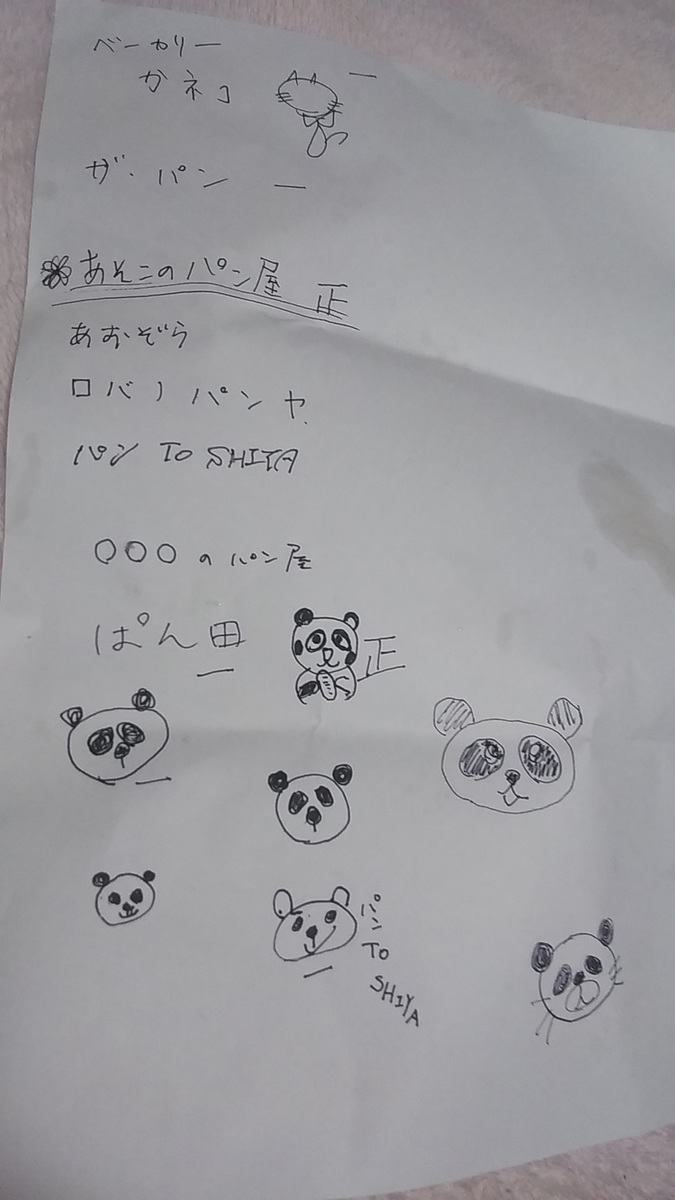 ベーカリー
かネコ 一
ザ・パン 一
あそこのパン屋 正
あおぞら
ロバノパンヤ
パン TO SHIYA
〇〇〇のパン屋
ぱん田 一
正
一
一
パン
TO
SHIYA